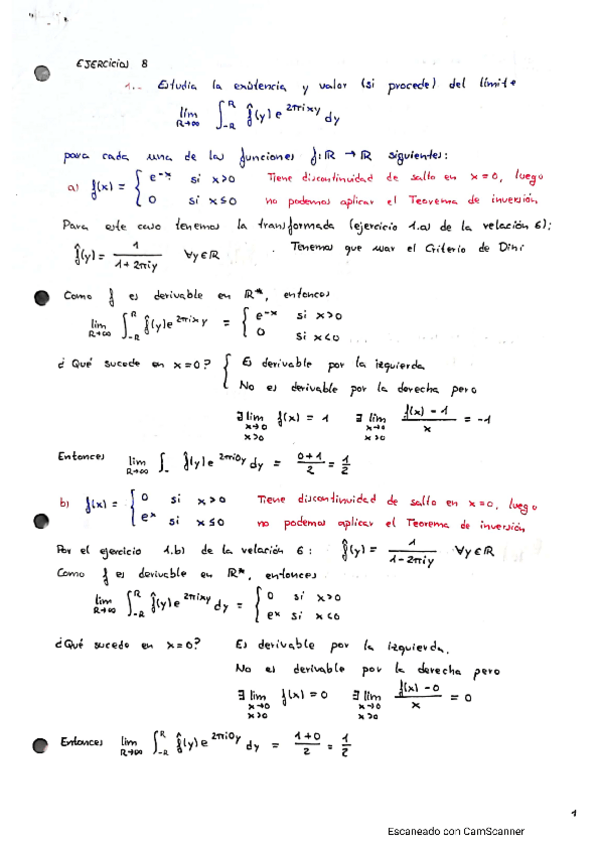 EJERCICIOS 8
1.. Estudia la existencia y valor (si procede) del límite
lim_{R→∞} ∫_{-R}^{R} f̂(y) e^{2πixy} dy
para cada una de las funciones f: ℝ → ℝ siguientes:
a) f(x) = { e^{-x} si x>0 Tiene discontinuidad de salto en x=0, luego
0 si x≤0 no podemos aplicar el Teorema de inversión.
Para este caso tenemos la transformada (ejercicio 1.a) de la relación 6):
f̂(y) = 1 / (1+2πiy) ∀y∈ℝ . Tenemos que usar el Criterio de Dini
Como f es derivable en ℝ*, entonces
lim_{R→∞} ∫_{-R}^{R} f̂(y) e^{2πixy} = { e^{-x} si x>0
0 si x<0 .
¿Qué sucede en x=0? { Es derivable por la izquierda
No es derivable por la derecha pero
∃ lim_{x→0, x>0} f(x) = 1 ∃ lim_{x→0, x>0} (f(x) - 1)/x = -1
Entonces lim_{R→∞} ∫_- f̂(y) e^{2πi0y} dy = (0+1)/2 = 1/2
b) f(x) = { 0 si x>0 Tiene discontinuidad de salto en x=0, luego
e^x si x≤0 no podemos aplicar el Teorema de inversión
Por el ejercicio 1.b) de la relación 6: f̂(y) = 1 / (1-2πiy) ∀y∈ℝ
Como f es derivable en ℝ*, entonces
lim_{R→∞} ∫_{-R}^{R} f̂(y) e^{2πixy} dy = { 0 si x>0
e^x si x<0
¿Qué sucede en x=0? Es derivable por la izquierda.
No es derivable por la derecha pero
∃ lim_{x→0, x>0} f(x) = 0 ∃ lim_{x→0, x>0} (f(x) - 0)/x = 0
Entonces lim_{R→∞} ∫_{-R}^{R} f̂(y) e^{2πi0y} dy = (1+0)/2 = 1/2
1
Escaneado con CamScanner